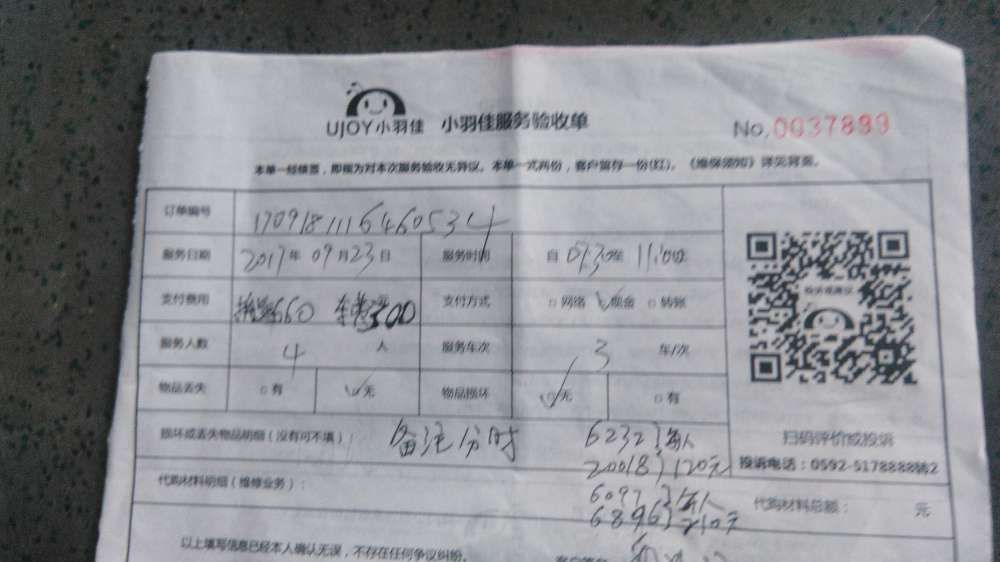 UJOY小羽佳 小羽佳服务验收单 No.0037899
本单一经签署，即视为对本次服务验收无异议。本单一式两份，客户留存一份(红)。《维保须知》详见背面。
订单编号 1709181116460534
服务日期 2017年09月23日 服务时间 自 07:30至 11:00
支付费用 660 300 支付方式 网络 现金 转账
服务人数 4 人 服务车次 3 车/次
物品丢失 有 无 物品损坏 无 有
损坏或丢失物品明细（没有可不填）： 备注分时 6232 每人
20018 120元
扫码评价或投诉
投诉电话：0592-5178888转2
代购材料明细（维修业务）： 6097 每人
6896 210元
代购材料总额： 元
以上填写信息已经本人确认无误，不存在任何争议纠纷。